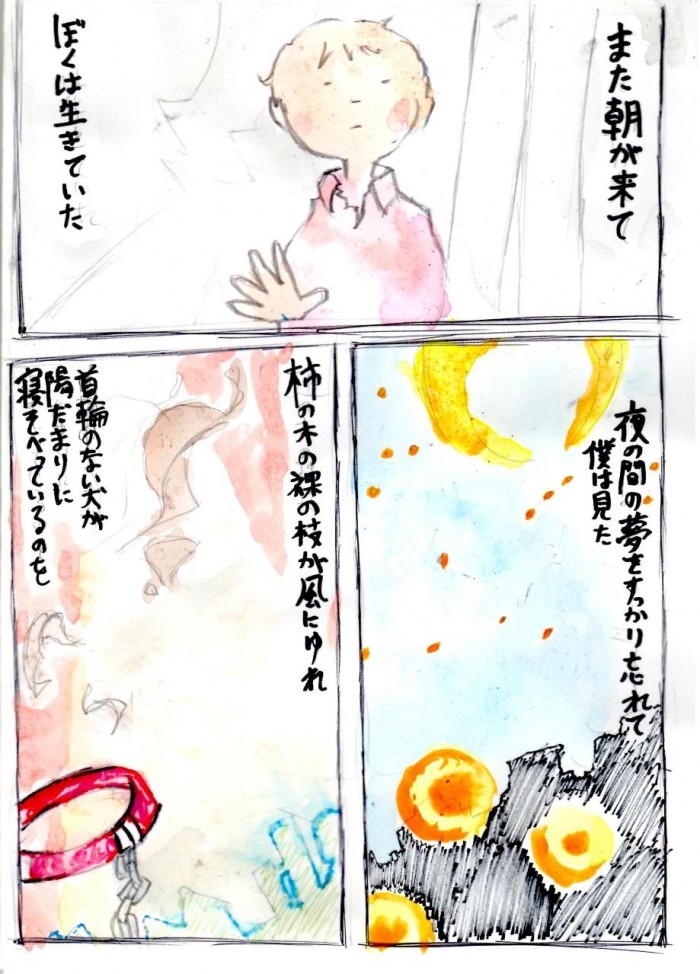 また朝が来て
ぼくは生きていた
夜の間の夢をすっかり忘れて
僕は見た
柿の木の裸の枝が風にゆれ
首輪のない犬が
陽だまりに
寝そべっているのを